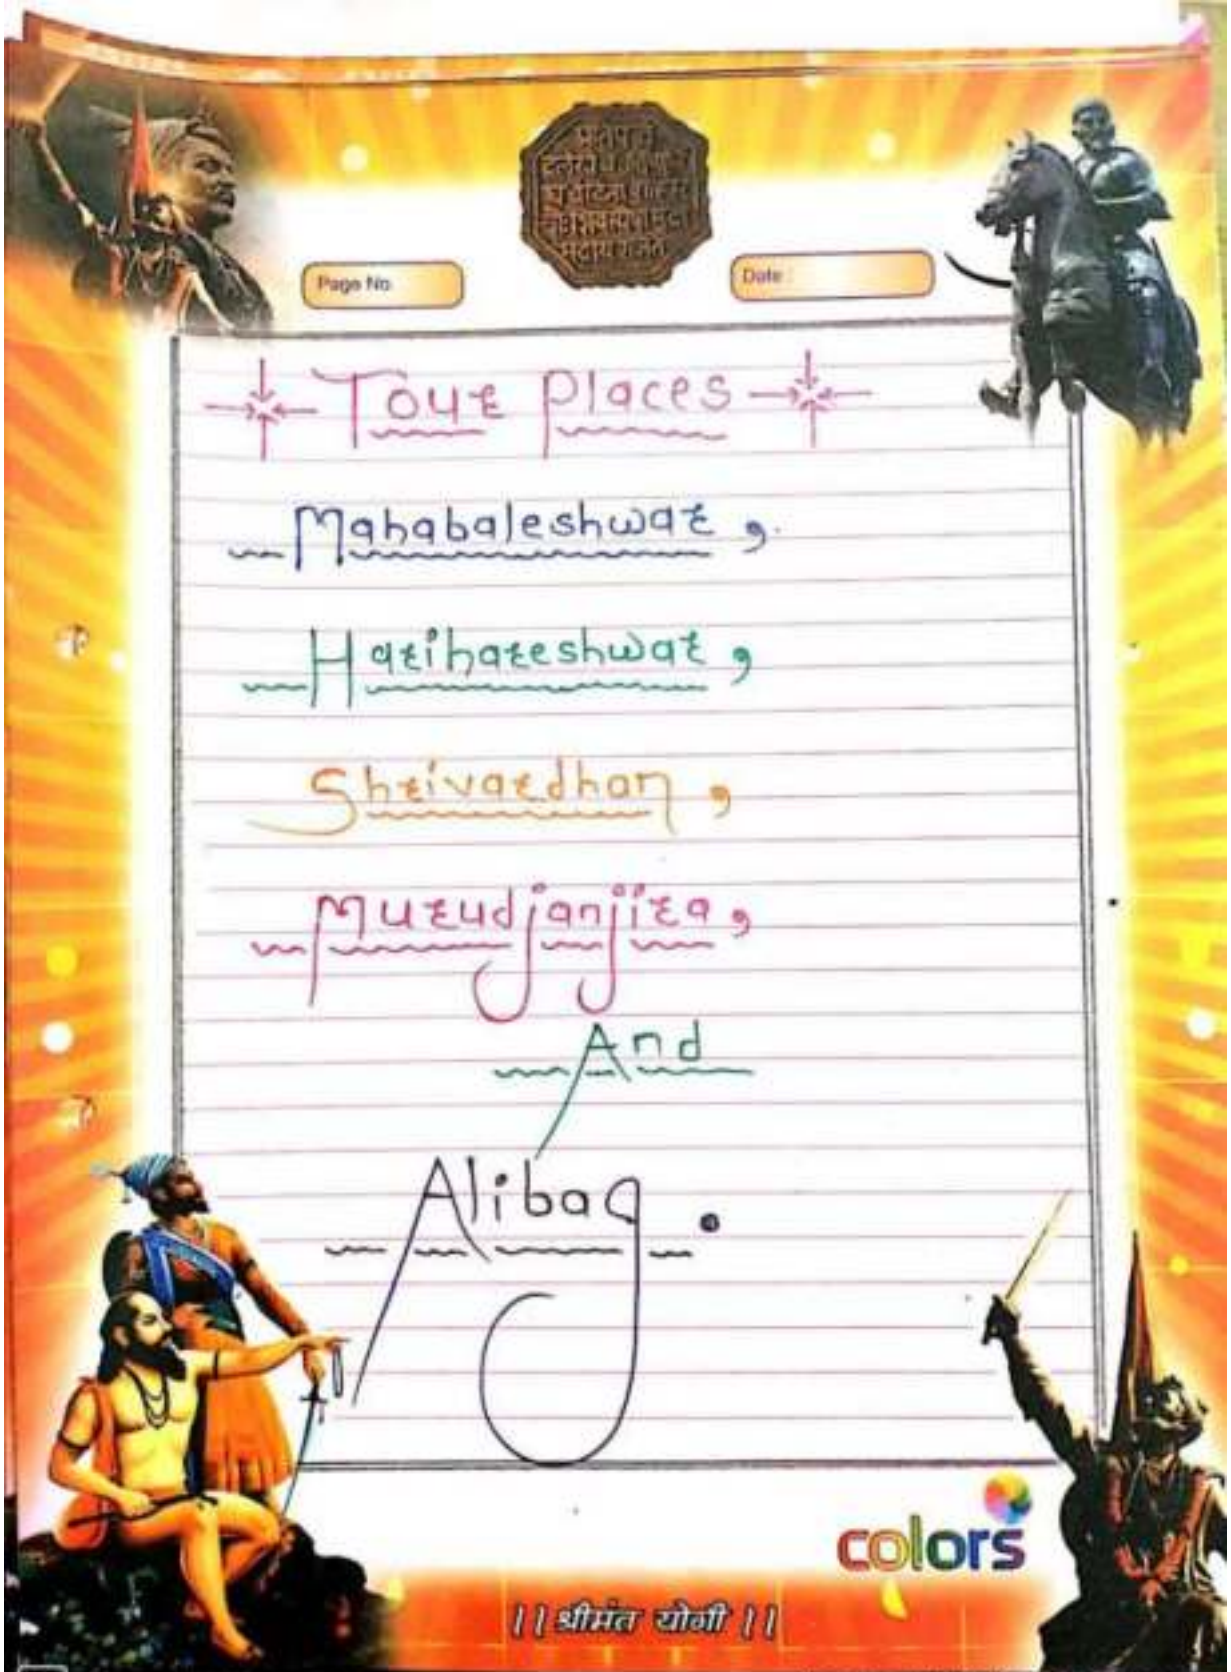 Page No.
Date :
Tour Places
Mahabaleshwar,
Harihareshwar,
Shrivardhan,
Murudjanjira,
And
Alibag.
colors
|| श्रीमंत योगी ||